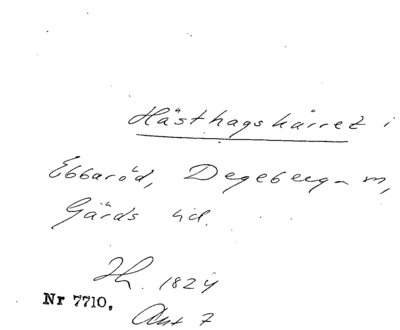 Hästhagskärret i
Ebbaröd, Degeberga m,
Gärds hd.
Jh. 1824
Nr 7710.
Akt 7